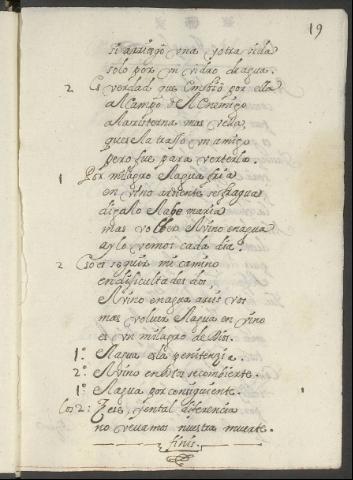 19
si arriesgo una y otra vida
solo por un vidro de agua.
2 Es verdad que embio por ella
al campo del enemigo
a la cisterna mas vella,
que ella trasso un amigo
pero fue para verterla.
1 Por milagro el agua fria
en vino ardiente se fragua
digalo el abe maria
mas volber el vino en agua
aylo vemos cada dia.
2 Eso es seguir mi camino
en dificultades dos
el vino en agua avis vos
mas volver el agua en vino
es un milagro de Dios.
1º El agua es la penitenzia.
2º el vino en los se combierte.
1º el agua por consiguiente.
Los 2: y en tal diferencia
no veuamos nuestra muerte.
finis.